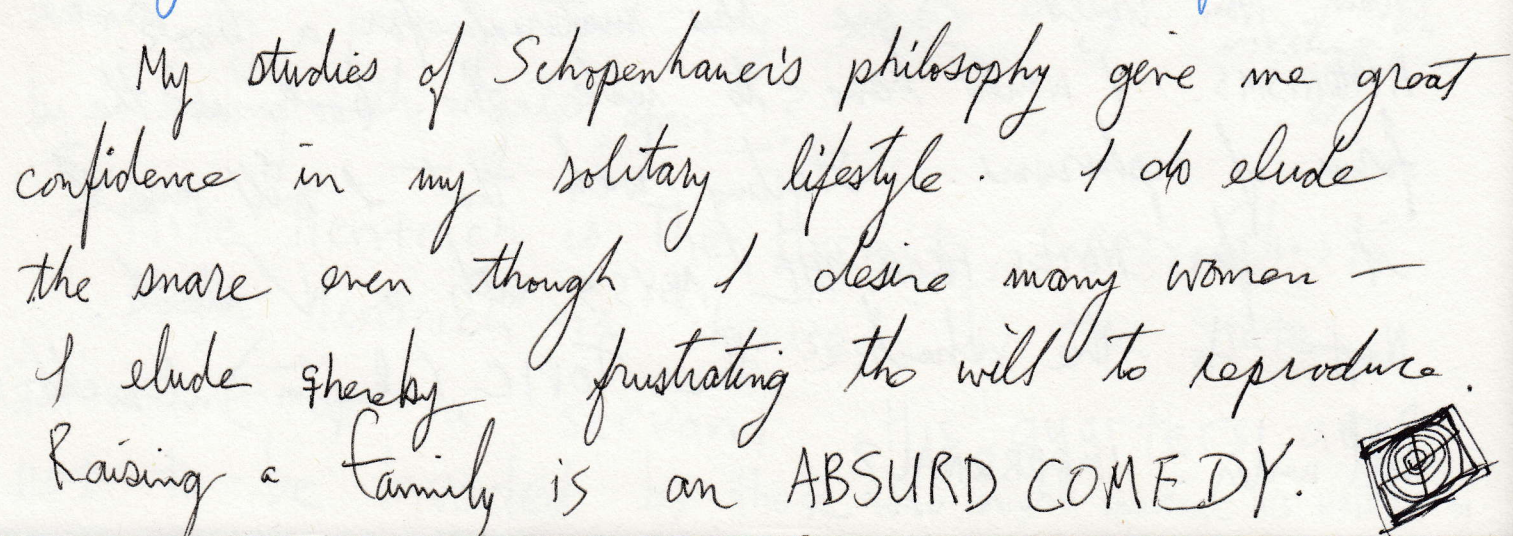 My studies of Schopenhauer's philosophy give me great
confidence in my solitary lifestyle. I do elude
the snare even though I desire many women —
I elude thereby frustrating the will to reproduce.
Raising a family is an ABSURD COMEDY.